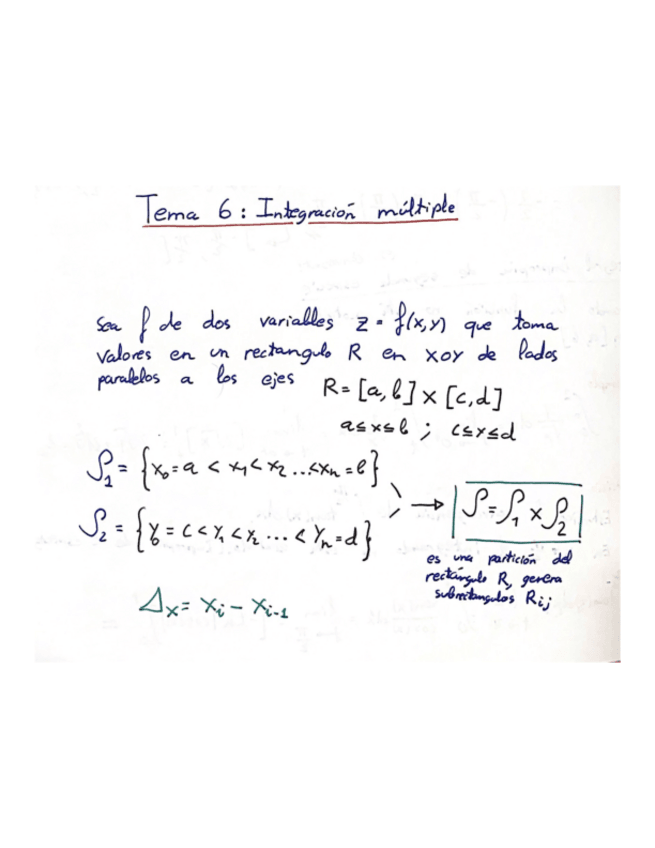 Tema 6: Integración múltiple
Sea f de dos variables z = f(x,y) que toma
valores en un rectangulo R en XOY de lados
paralelos a los ejes R = [a,b] × [c,d]
a ≤ x ≤ b ; c ≤ y ≤ d
P₁ = {x₀ = a < x₁ < x₂ ... < xₙ = b}
P₂ = {y₀ = c < y₁ < y₂ ... < yₙ = d}
→ P = P₁ × P₂
es una partición del
rectángulo R, genera
subrectangulos Rᵢⱼ
Δx = xᵢ - xᵢ₋₁